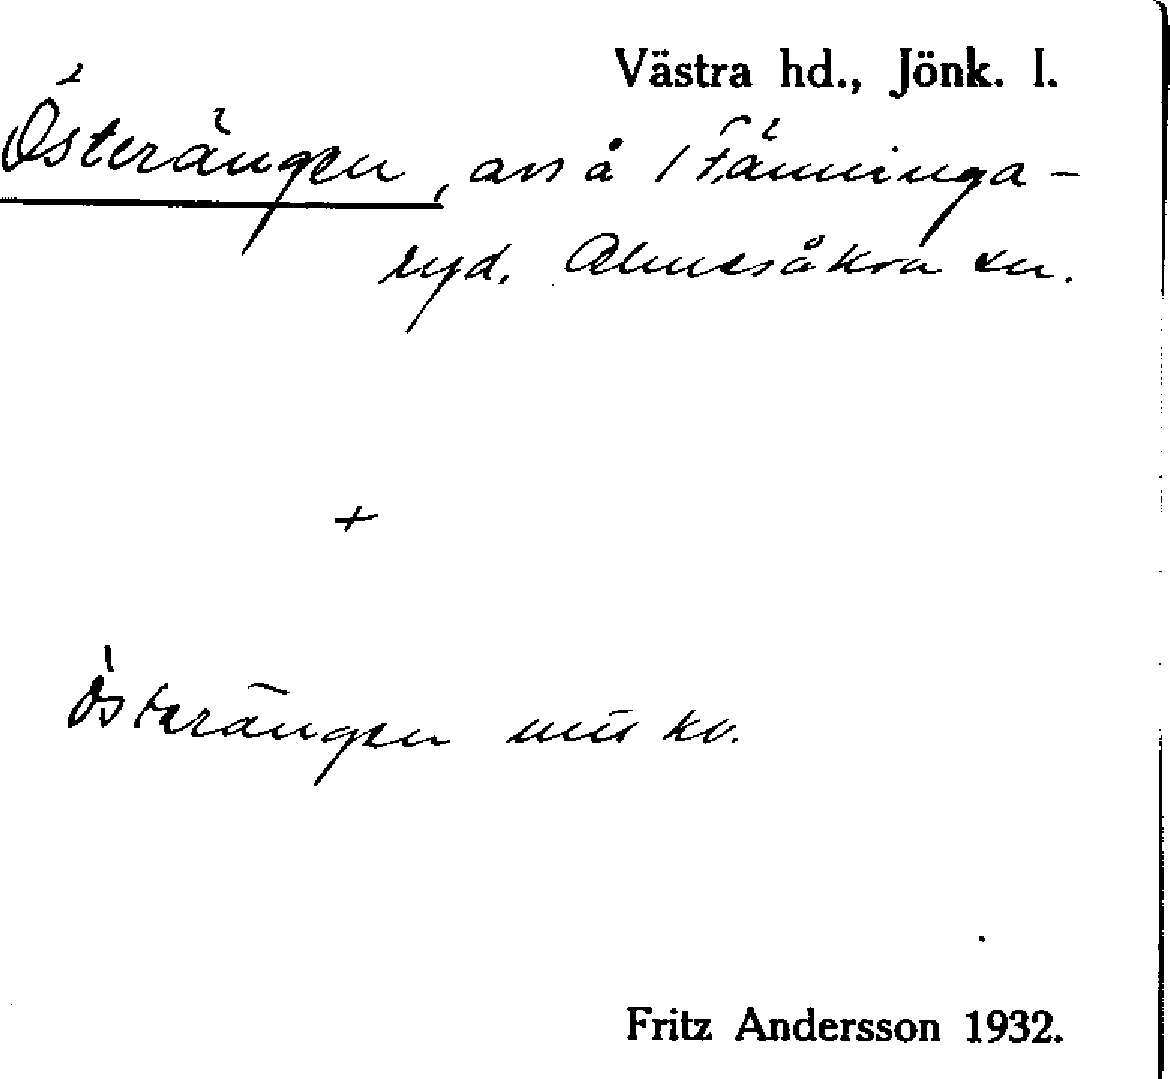 Västra hd., Jönk. l.
Österängen, avs å 1 Fänninga-
ryd. Almesåkra sn.
+
Österängen mtl kv.
Fritz Andersson 1932.